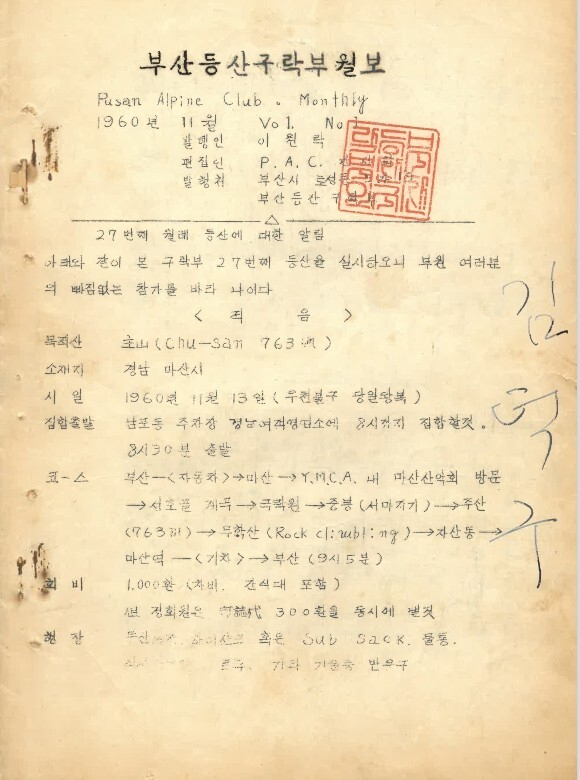 부산등산구락부월보
Pusan Alpine Club. Monthly
1960年 11월 Vol. No.1
발행인 이원락
편집인 P.A.C.
발행처 부산시
부산등산
27번째 월례 등산에 대한 알림
아래와 같이 본 구락부 27번째 등산을 실시하오니 부원 여러분
의 빠짐없는 참가를 바라 나이다
< 적음 >
목적산 主山(Chu-San 763㎡)
소재지 경남 마산시
시 일 1960년 11월 13일(우천불구 당일왕복)
집합출발 남포동 주차장 경남여객영업소에 8시까지 집합할것.
8시30분 출발
코-스 부산—<자동차>→마산→Y.M.C.A. 내 마산산악회 방문
→서호골 계곡→극락원→중봉(서마지기)→주산
(763㎡)→무학산(Rock climbling)→자산동→
마산역—<기차>→부산(9시5분)
회 비 1,000환(차비. 간식대 포함)
但 정회원은 300환을 동시에 낼것
혹은 Sub Sack. 물통.
기타 기울증 반우구
김덕주